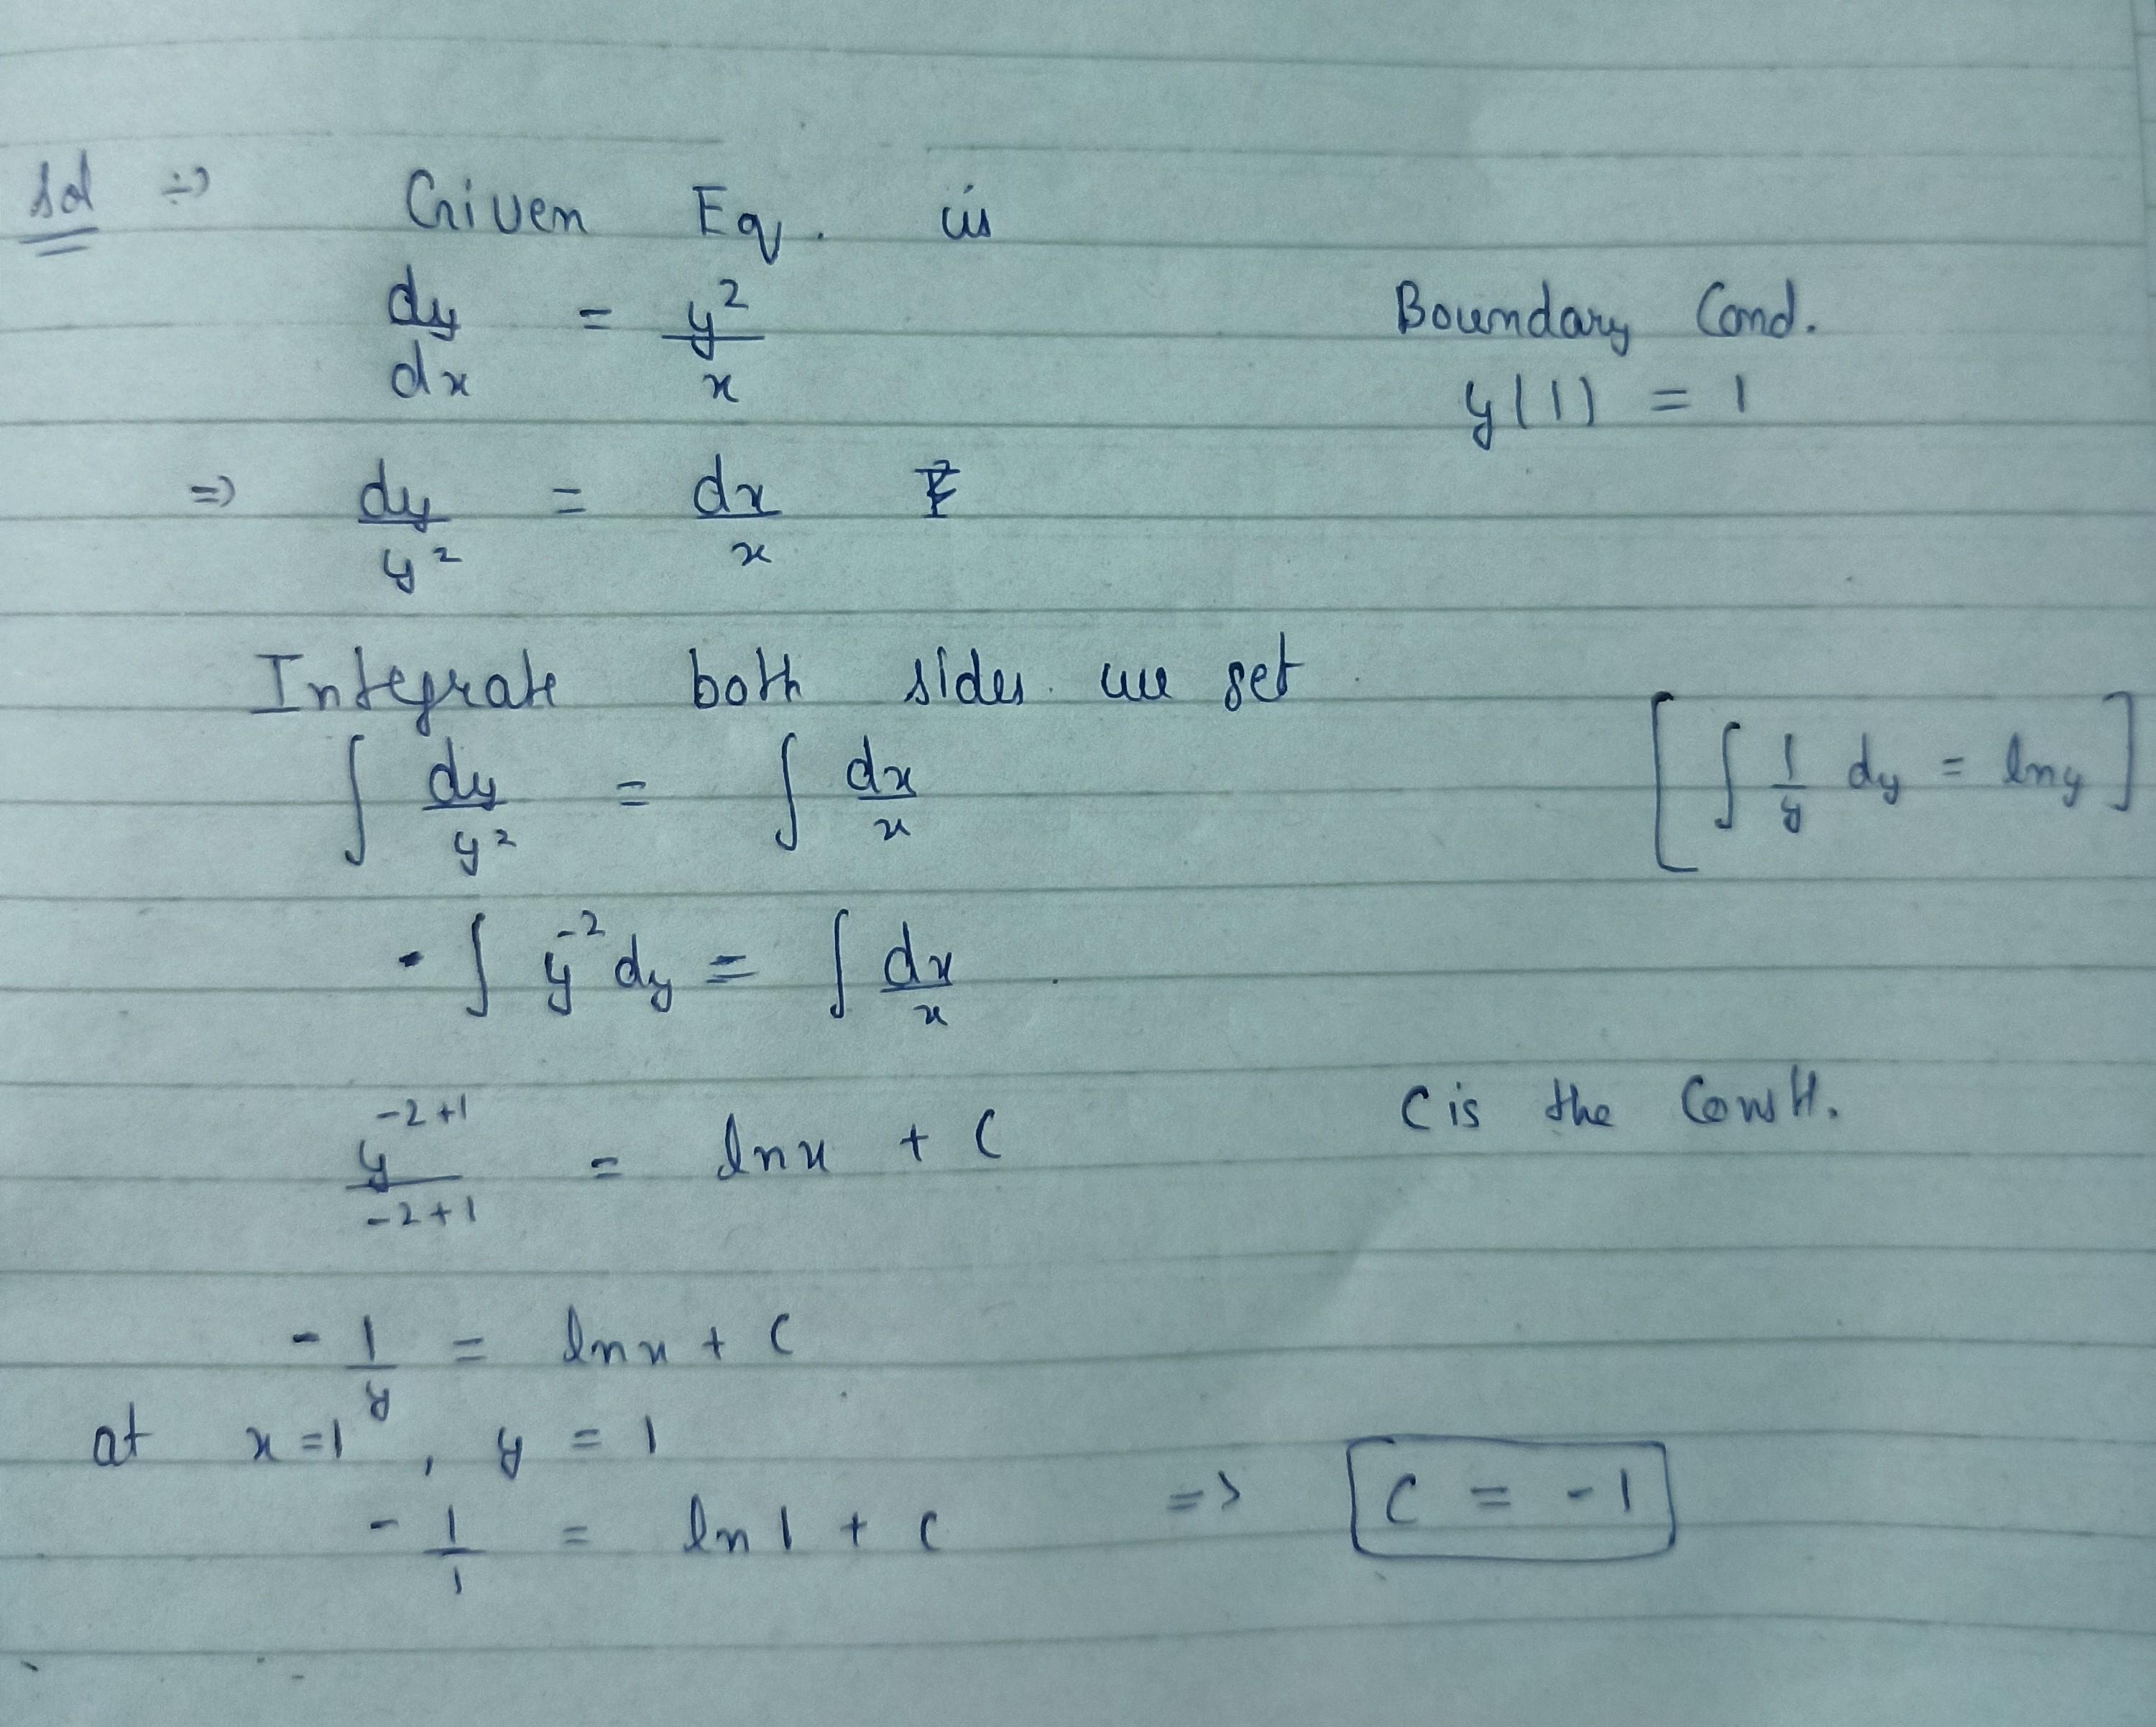 Sol ÷)
Given Eq. is
dy/dx = y²/x
Boundary Cond.
y(1) = 1
=) dy/y² = dx/x
Integrate both sides we get
∫ dy/y² = ∫ dx/x
[∫ 1/y dy = lny]
- ∫ y⁻² dy = ∫ dx/x
y⁻²⁺¹/-2+1 = lnx + C
C is the Constt.
- 1/y = lnx + C
at x=1, y = 1
- 1/1 = ln 1 + C => C = -1